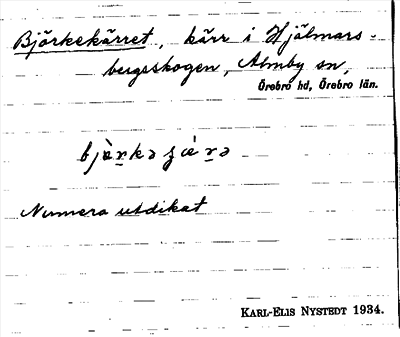 Björkekärret, kärr i Hjälmars-
bergsskogen, Almby sn,
Örebro hd, Örebro län.
Numera utdikat
KARL-ELIS NYSTEDT 1934.